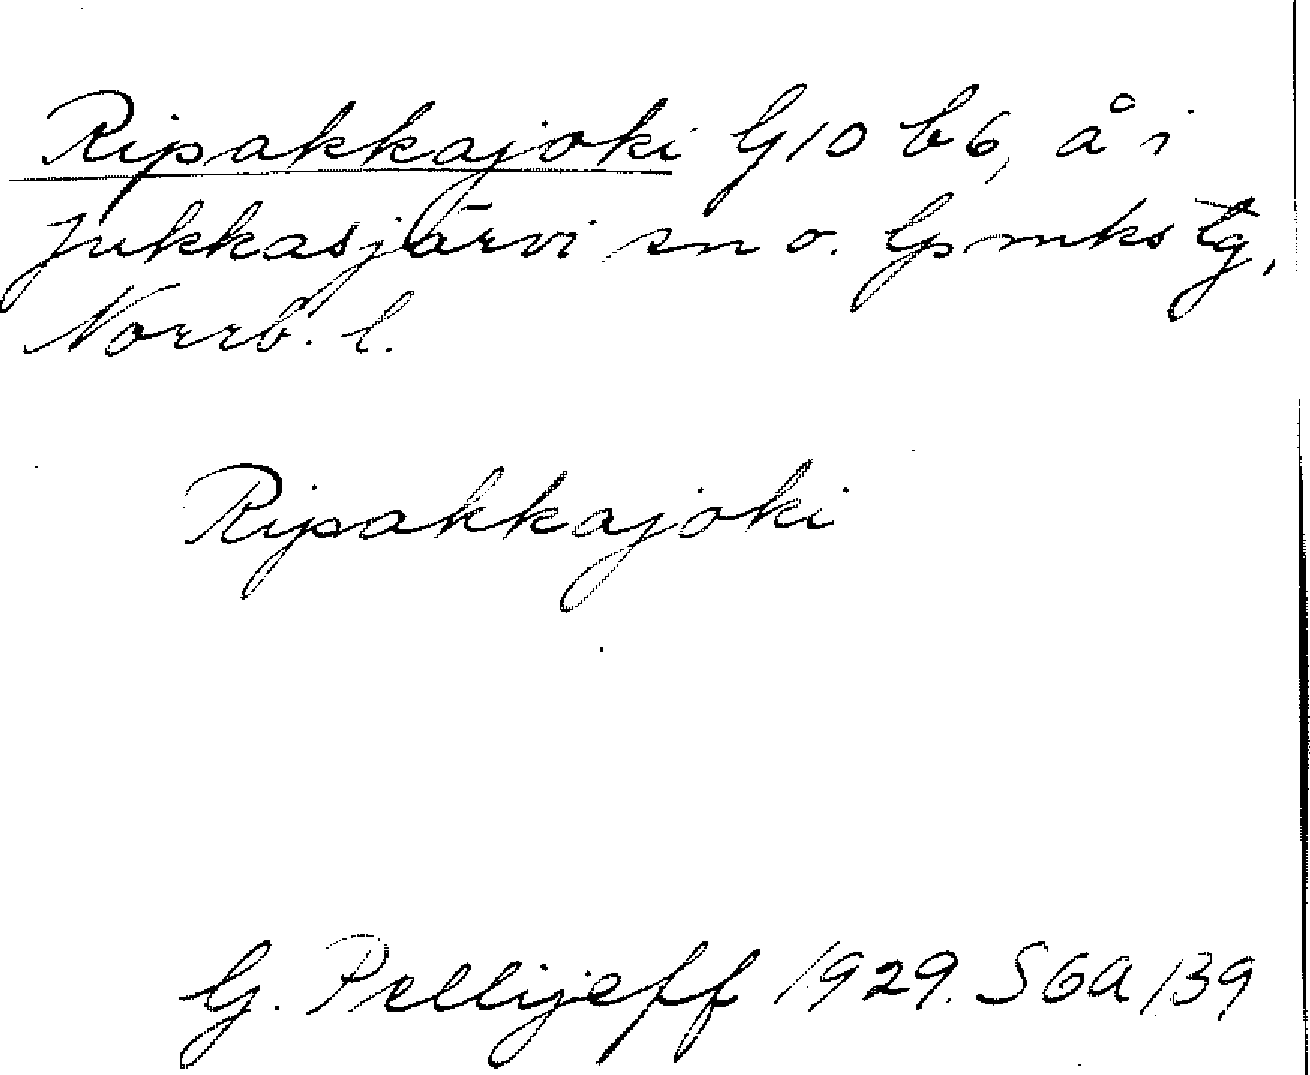 Ripakkajoki G10 b6, å i
Jukkasjärvi sn o. Lpmks tg,
Norrb. l.
Ripakkajoki
G. Pellijeff 1929. S6a 139